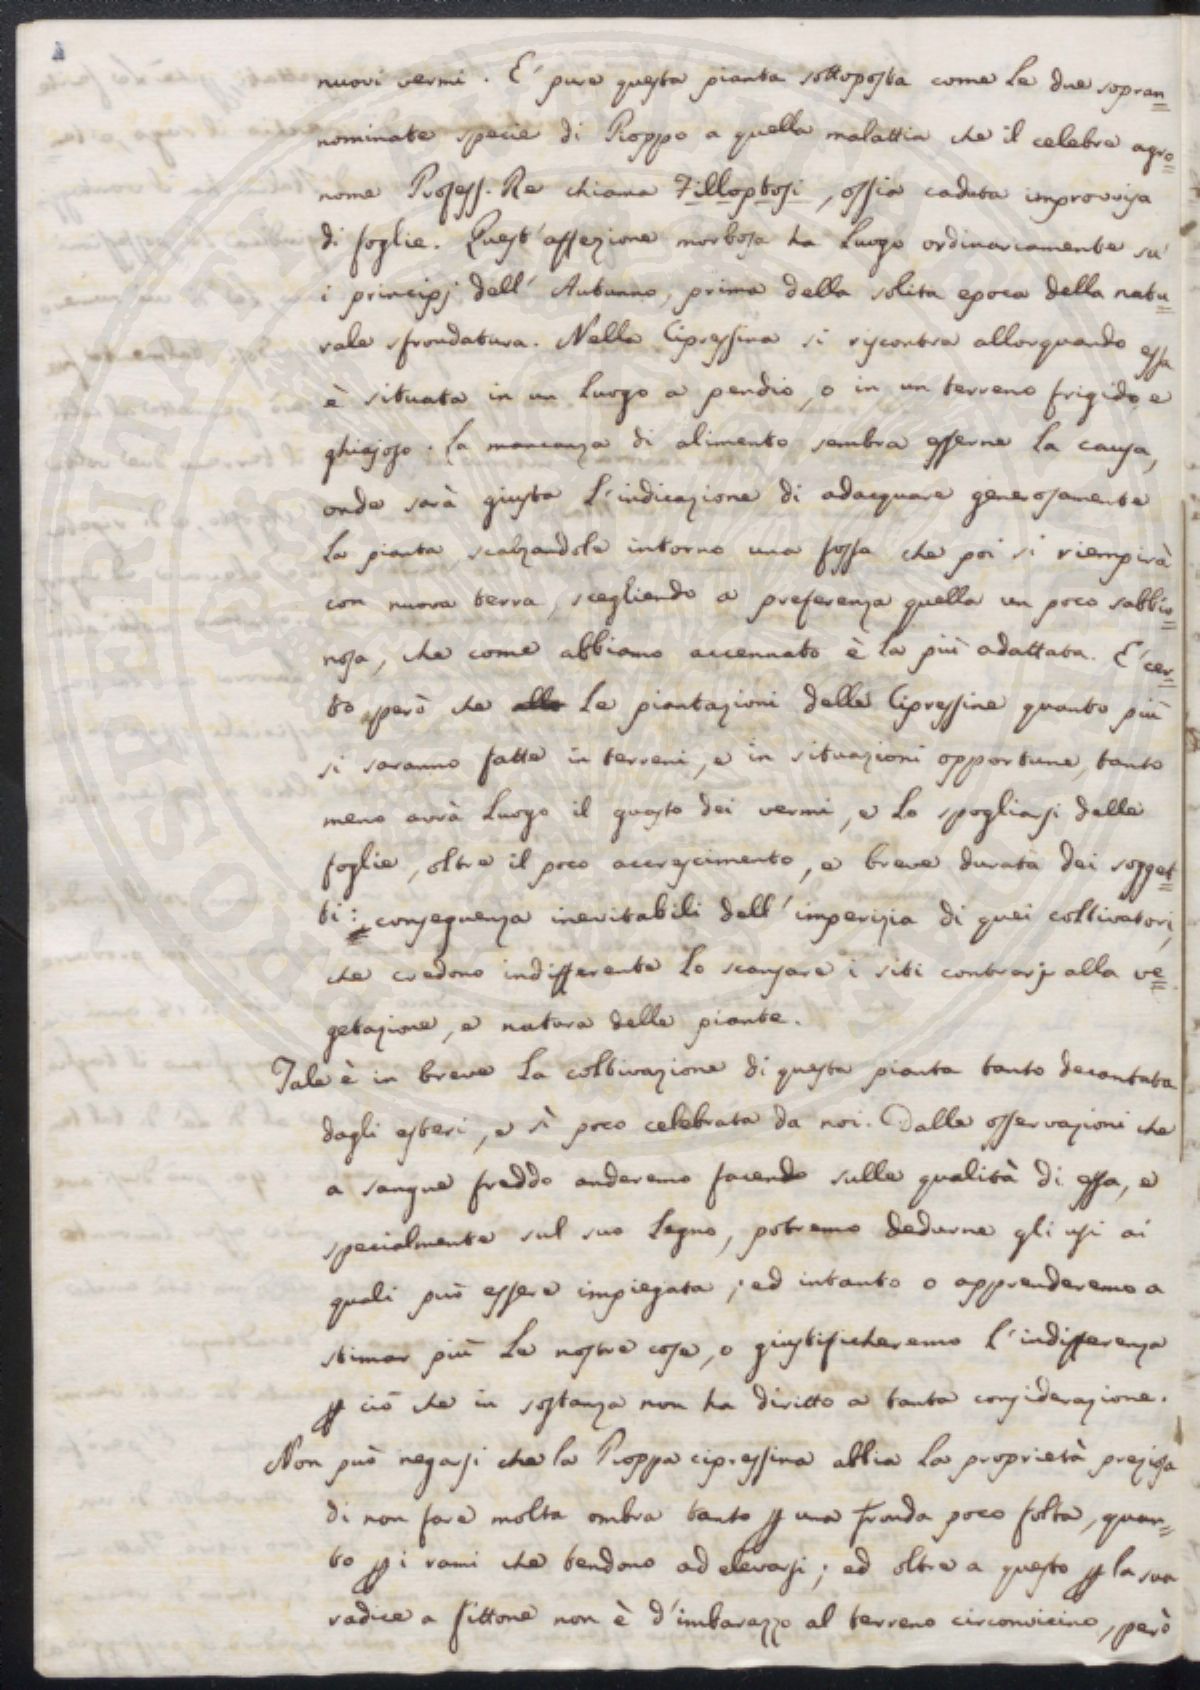 nuovi vermi. E' pure questa pianta sottoposta come le due sopran=
nominate specie di Pioppo a quella malattia che il celebre agro=
nome Profess. Re chiama Filloptosi, ossia caduta improvvisa
di foglie. Quest'affezione morbosa ha luogo ordinariamente su'
i principj dell'Autunno, prima della solita epoca della natu=
rale sfrondatura. Nella Cipressina si riscontra allorquando essa
è situata in un luogo a pendio, o in un terreno frigido e
ghiajoso. La mancanza di alimento sembra esserne la causa,
onde sarà giusta l'indicazione di adacquare generosamente
la pianta, scalzandole intorno una fossa che poi si riempirà
con nuova terra, scegliendo a preferenza quella un poco sabbio=
nosa, che come abbiamo accennato è la più adattata. E' cer=
to però che le piantazioni delle Cipressine quanto più
si saranno fatte in terreni, e in situazioni opportune, tanto
meno avrà luogo il guasto dei vermi, e lo spogliarsi delle
foglie, oltre il poco accrescimento, e breve durata dei sogget=
ti: conseguenza inevitabili dell'imperizia di quei coltivatori,
che credono indifferente lo scansare i siti contrarj alla ve=
getazione, e natura delle piante.
Tale è in breve la coltivazione di questa pianta tanto decantata
dagli esteri, e sì poco celebrata da noi. Dalle osservazioni che
a sangue freddo anderemo facendo sulle qualità di essa, e
specialmente sul suo legno, potremo dedurne gli usi ai
quali può essere impiegata; ed intanto o apprenderemo a
stimar più le nostre cose, o giustificheremo l'indifferenza
ꝑ ciò che in sostanza non ha diritto a tanta considerazione.
Non può negarsi che la Pioppa cipressina abbia la proprietà preziosa
di non fare molta ombra tanto ꝑ una fronda poco folta, quan=
to ꝑ i rami che tendono ad elevarsi; ed oltre a questo ꝑ la sua
radice a fittone non è d'imbarazzo al terreno circonvicino, però